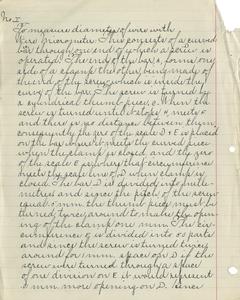 No. I
To measure diameter of wire with
Wire Micrometer. This consists of a curved
bar through one end of which a screw is
operated. The end of the bar, A, forms one
side of a clamp the other being made of
the end of the screw which is inside the
curve of the bar. The screw is turned by
a cylindrical thumb piece, C. When the
screw is turned until it stops A meets
and there is no distance between them
consequently the zero of the scale D + E is placed
on the bar where it meets the curved piece
when the clamp is closed and the zero
of the scale E is where that circumference
meets the scale line of D when clamp is
closed. The bar D is divided into milli-
meters and since the pitch of the screw
equals .5 mm. the thumb piece must be
turned twice around to make the open-
ing of the clamp one mm. The cir-
cumference E is divided into 50 parts
and since the screw is turned twice
around for 1 mm. space of D if the
screw were turned through a space
of one division on E it would represent
mm. more opening on D. Hence